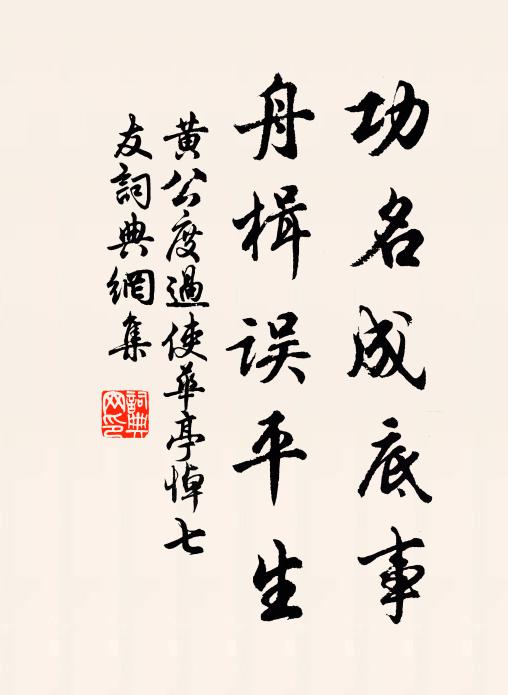 功名成底事
舟楫误平生
黄公度過使華亭悼七
友詞典網集
詞典
网印